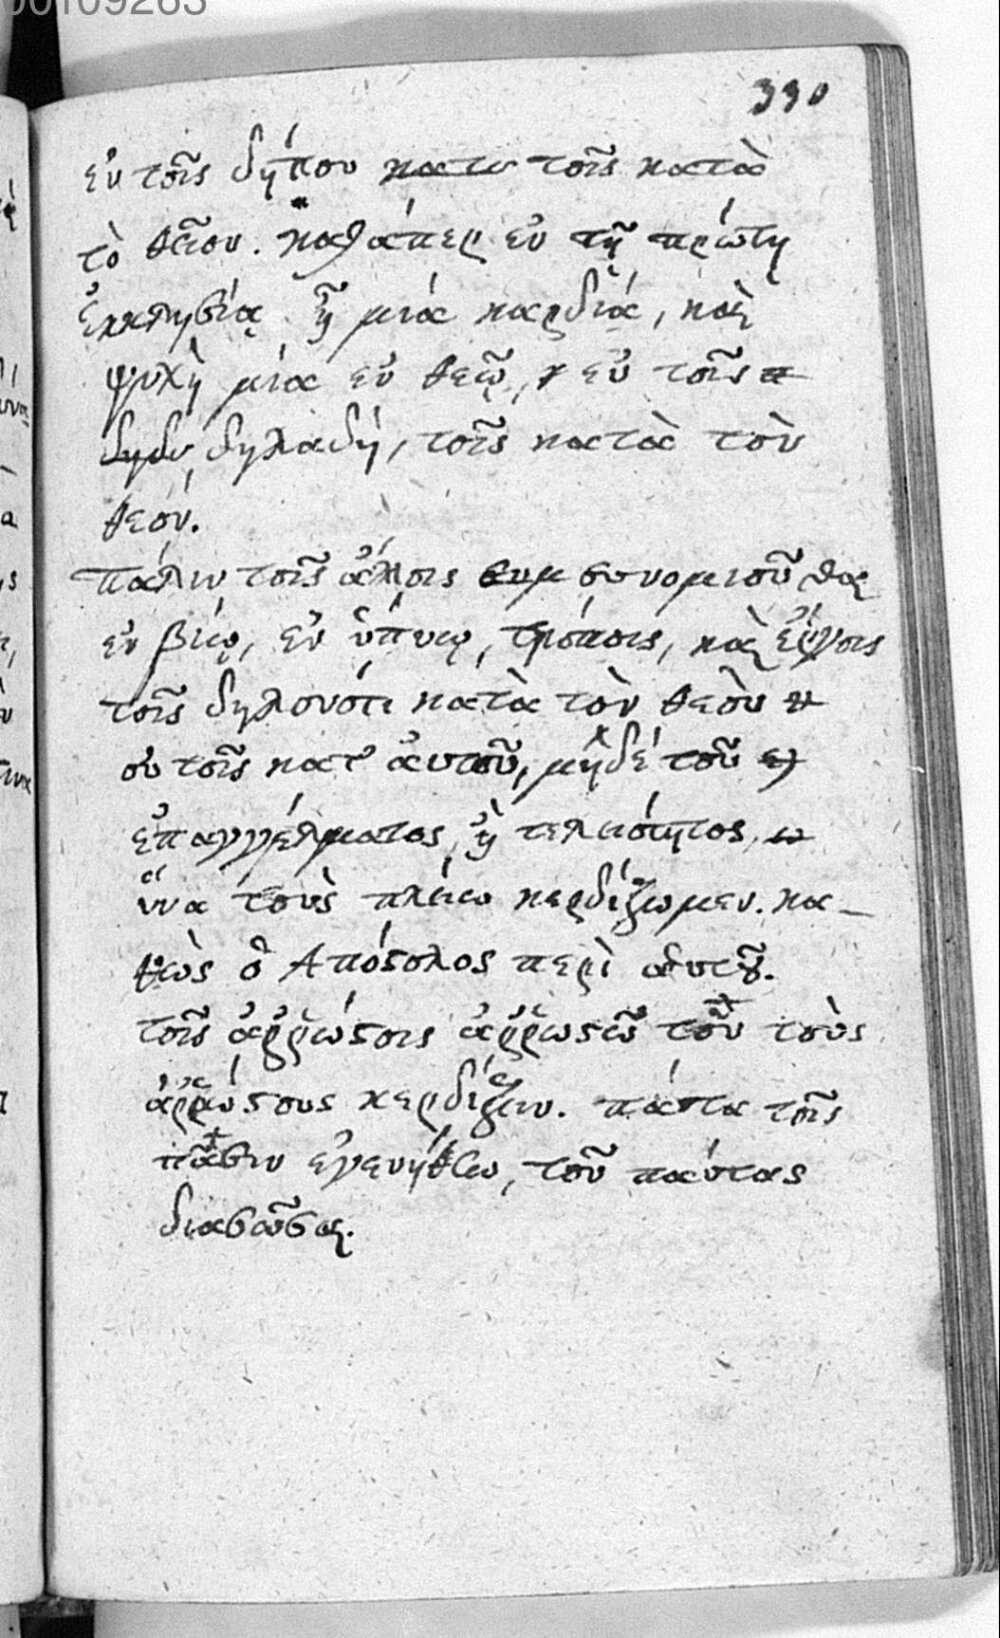 00109263
330
ἐν τοῖς δήπου κατω τοῖς κατὰ
τὸ θεῖον. καθάπερ ἐν τῇ πρώτῃ
ἐκκλησίᾳ ἦ μιά καρδιά, καὶ
ψυχὴ μία ἐν θεῷ, ἐν τοῖς
δηλαδή, τοῖς κατὰ τὸν
θεόν.
πάλιν τοῖς ἄλλοις συμ συνομιοῦσθαι
ἐν βίῳ, ἐν ὕπνῳ, τρόποις, καὶ ἔργοις
τοῖς δηλονότι κατὰ τὸν θεὸν
οὐ τοῖς κατ' ἀυτοῦ, μηδέ τοῦ
ἐπαγγέλματος, ἢ τελειότητος,
ἵνα τοὺς πλείω κερδίζωμεν. κα-
θὼς ὁ Απόϛολος περὶ αὑτοῦ.
τοῖς ἀῤῥώϛοις ἀῤῥωϛῶ τοῦ τοὺς
ἀῤῥώϛους κερδίζειν. πάντα τοῖς
πᾶσιν ἐγενήθω, τοῦ πάντας
διασῶσαι.